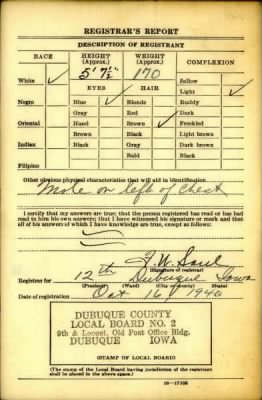 REGISTRAR'S REPORT
DESCRIPTION OF REGISTRANT
RACE HEIGHT (Approx.) WEIGHT (Approx.) COMPLEXION
5' 7½" 170
White ✓ Sallow
EYES HAIR Light ✓
Negro Blue ✓ Blonde Ruddy
Gray Red Dark
Oriental Hazel Brown ✓ Freckled
Brown Black Light brown
Indian Black Gray Dark brown
Bald Black
Filipino
Other obvious physical characteristics that will aid in identification
Mole on left of Chest
I certify that my answers are true; that the person registered has read or has had
read to him his own answers; that I have witnessed his signature or mark and that
all of his answers of which I have knowledge are true, except as follows:
(Signature of registrar)
Registrar for 12th Dubuque Iowa
(Precinct) (Ward) (City or county) (State)
Date of registration Oct 16, 1940
DUBUQUE COUNTY
LOCAL BOARD NO. 2
9th & Locust, Old Post Office Bldg.
DUBUQUE IOWA
(STAMP OF LOCAL BOARD)
(The stamp of the Local Board having jurisdiction of the registrant
shall be placed in the above space.)